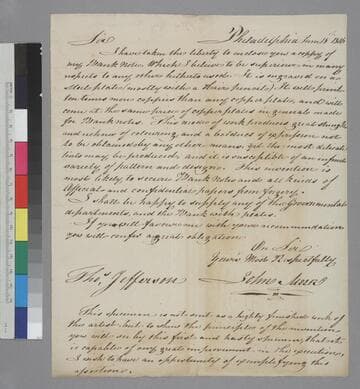 Philadelphia June 1816
Sir
I have taken the liberty to inclose you a copy of
my Bank Note, Which I believe to be superior in many
respects to any other hitherto used. It is engraved on a
steel plate (mostly with a
ten times more coppers than any copper plate, and will
come at the same price of copper plates in general made
for Bank notes. This mode of work produces great strength
and richness of colouring, and a boldness of expression not
to be obtained by any other means, yet the most delicate
tints may be produced, and it is susceptible of an infinite
variety of pattern and design. This invention is
most likely to secure Bank Notes and all kinds of
Official and confidential papers from forgery.
I shall be happy to supply any of the Governmental
departments, and the Bank with plates.
If you will favour me with your recommendation
you will confer a great obligation
On Sir
Yours Most Respectfully,
Thos. Jefferson
John
This specimen is not sent as a highly finished work of
this artist but to shew the principles of the invention
you will see by this first and hasty specimen, that it
is capable of any great improvement in the execution,
I wish to have an opportunity of exemplifying this
assertion.